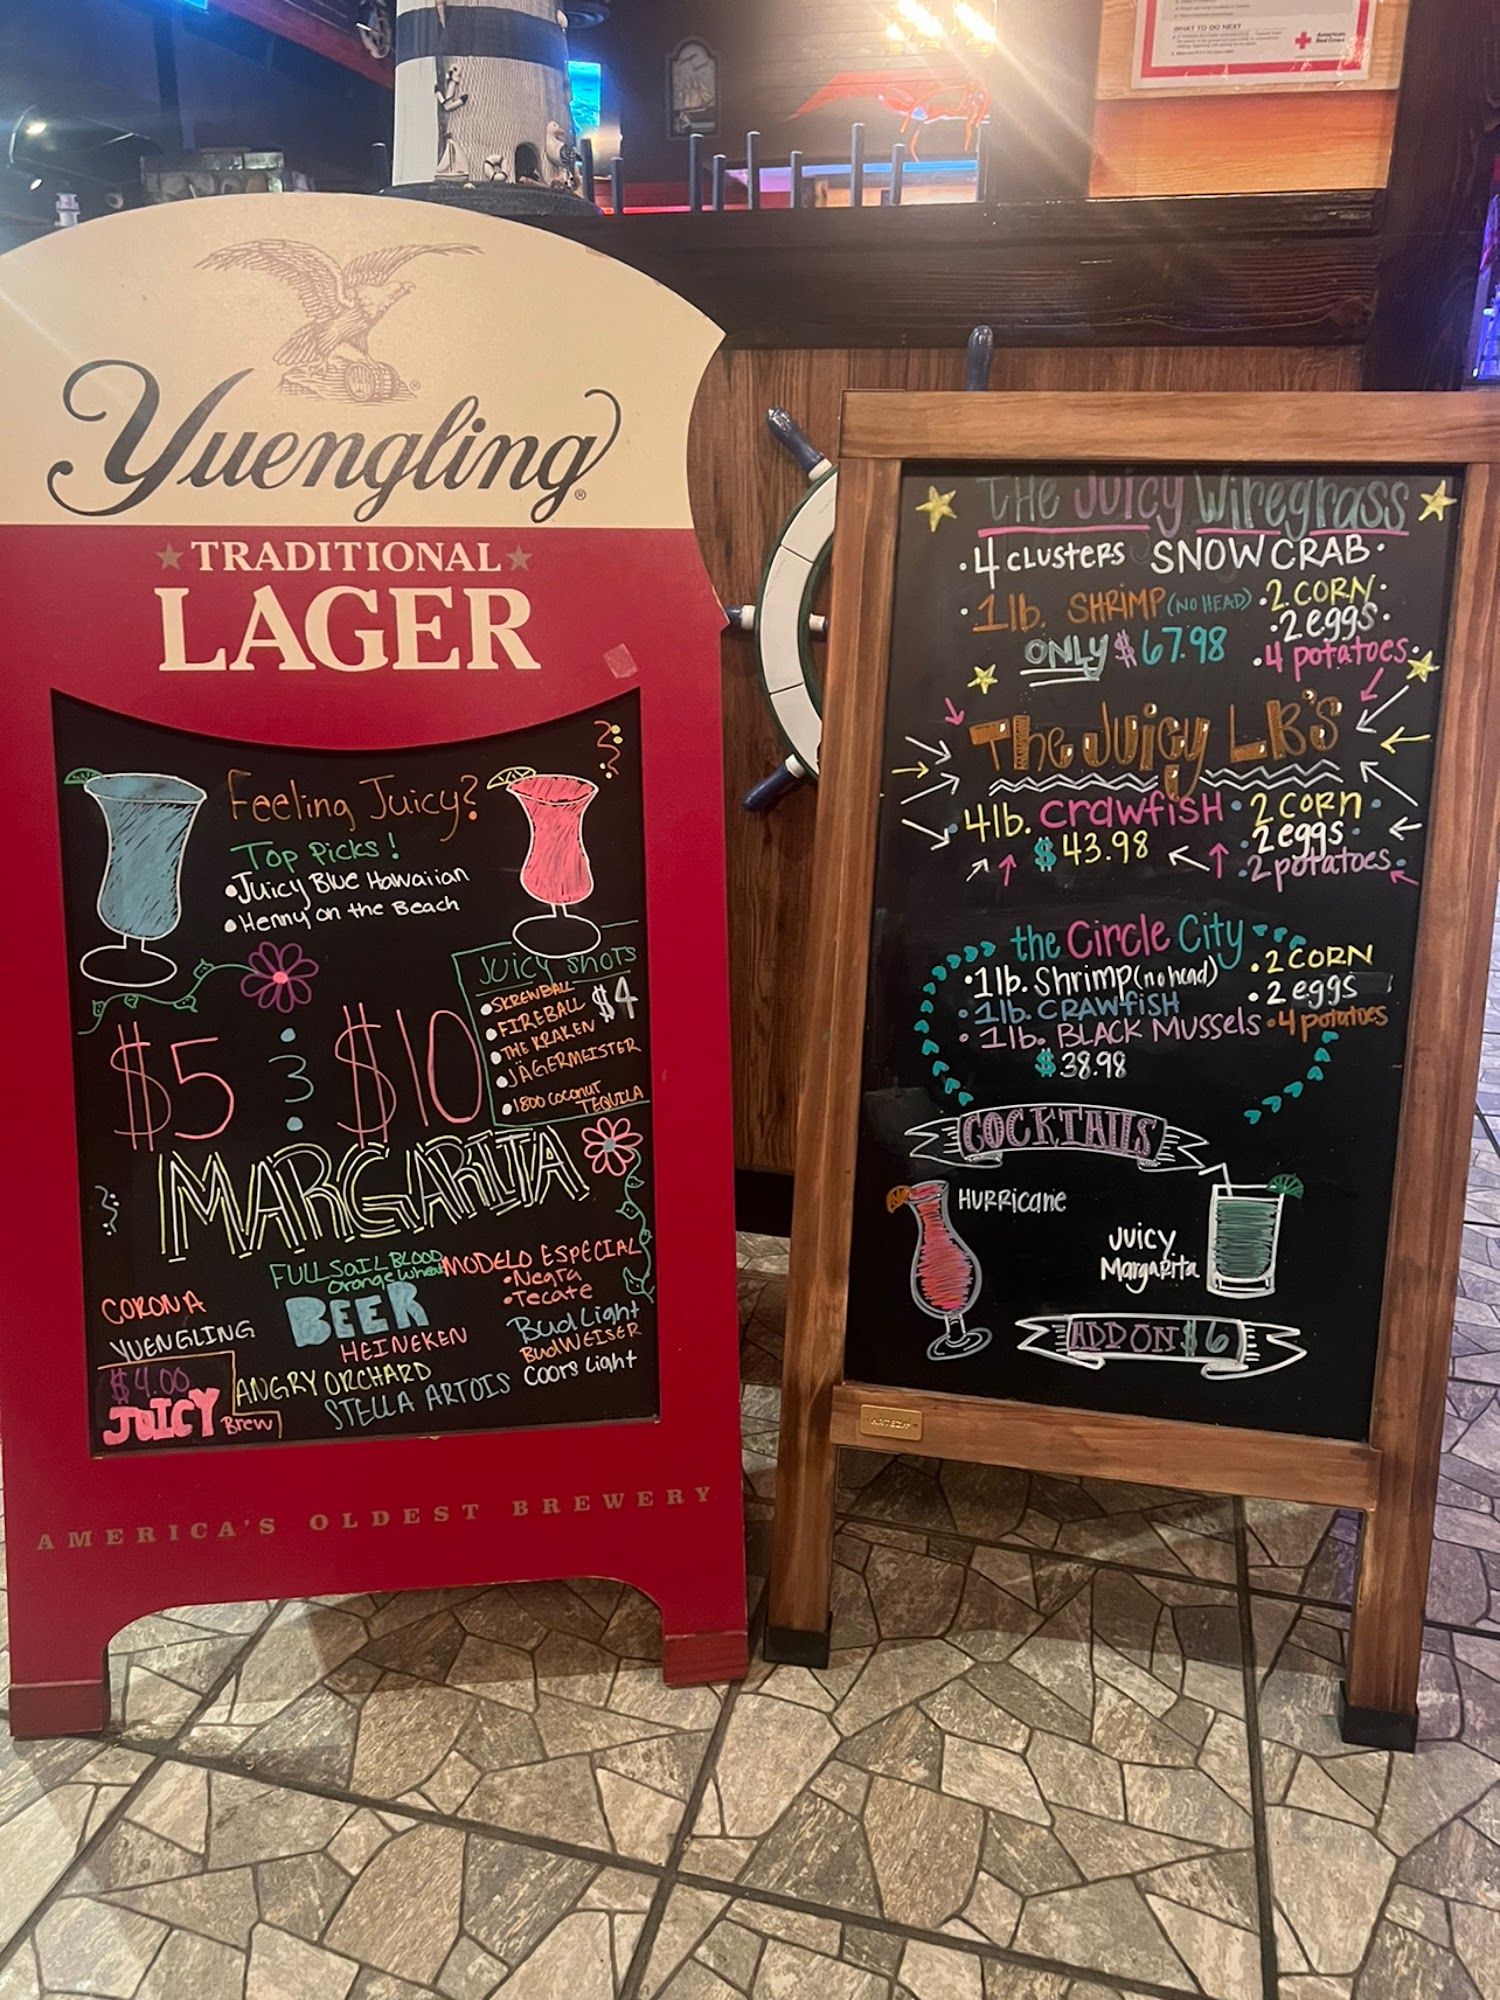 WHAT TO DO NEXT
American
Red Cross
Yuengling®
TRADITIONAL
LAGER
Feeling Juicy?
Top Picks!
•Juicy Blue Hawaiian
•Henny on the Beach
Juicy Shots
•SKREWBALL
•FIREBALL $4
•THE KRAKEN
•JÄGERMEISTER
•1800 COCONUT
TEQUILA
$5 & $10
MARGARITA
FULL SAIL BLOOD
Orange Wheat
MODELO ESPECIAL
•Negra
•Tecate
CORONA
BEER
Bud Light
YUENGLING
HEINEKEN
BudWEISER
Coors Light
$4.00
JUICY Brew
ANGRY ORCHARD
STELLA ARTOIS
AMERICA'S OLDEST BREWERY
THE JUICY WIREGRASS
•4 CLUSTERS SNOW CRAB•
•1lb. SHRIMP (NO HEAD) •2 CORN•
•2 eggs•
ONLY $67.98 •4 potatoes•
The Juicy LB'S
•4lb. CrawfisH •2 CORN•
$43.98 •2 eggs•
•2 potatoes•
the Circle City
•1lb. Shrimp (no head) •2 CORN
•1lb. CRAWfisH •2 eggs
•1lb. BLACK MUSSELS •4 potatoes
$38.98
COCKTAILS
HURRICANE
JUICY
Margarita
ADD ON $6
ARTEZA